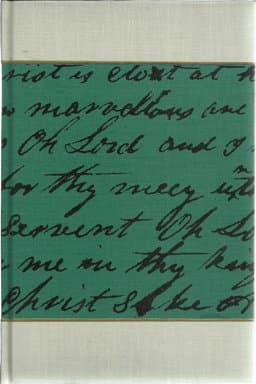 rist is close at h
marvellous are
Oh Lord and I
for thy mercy
servent Oh Lo
me in thy king
Christ sake